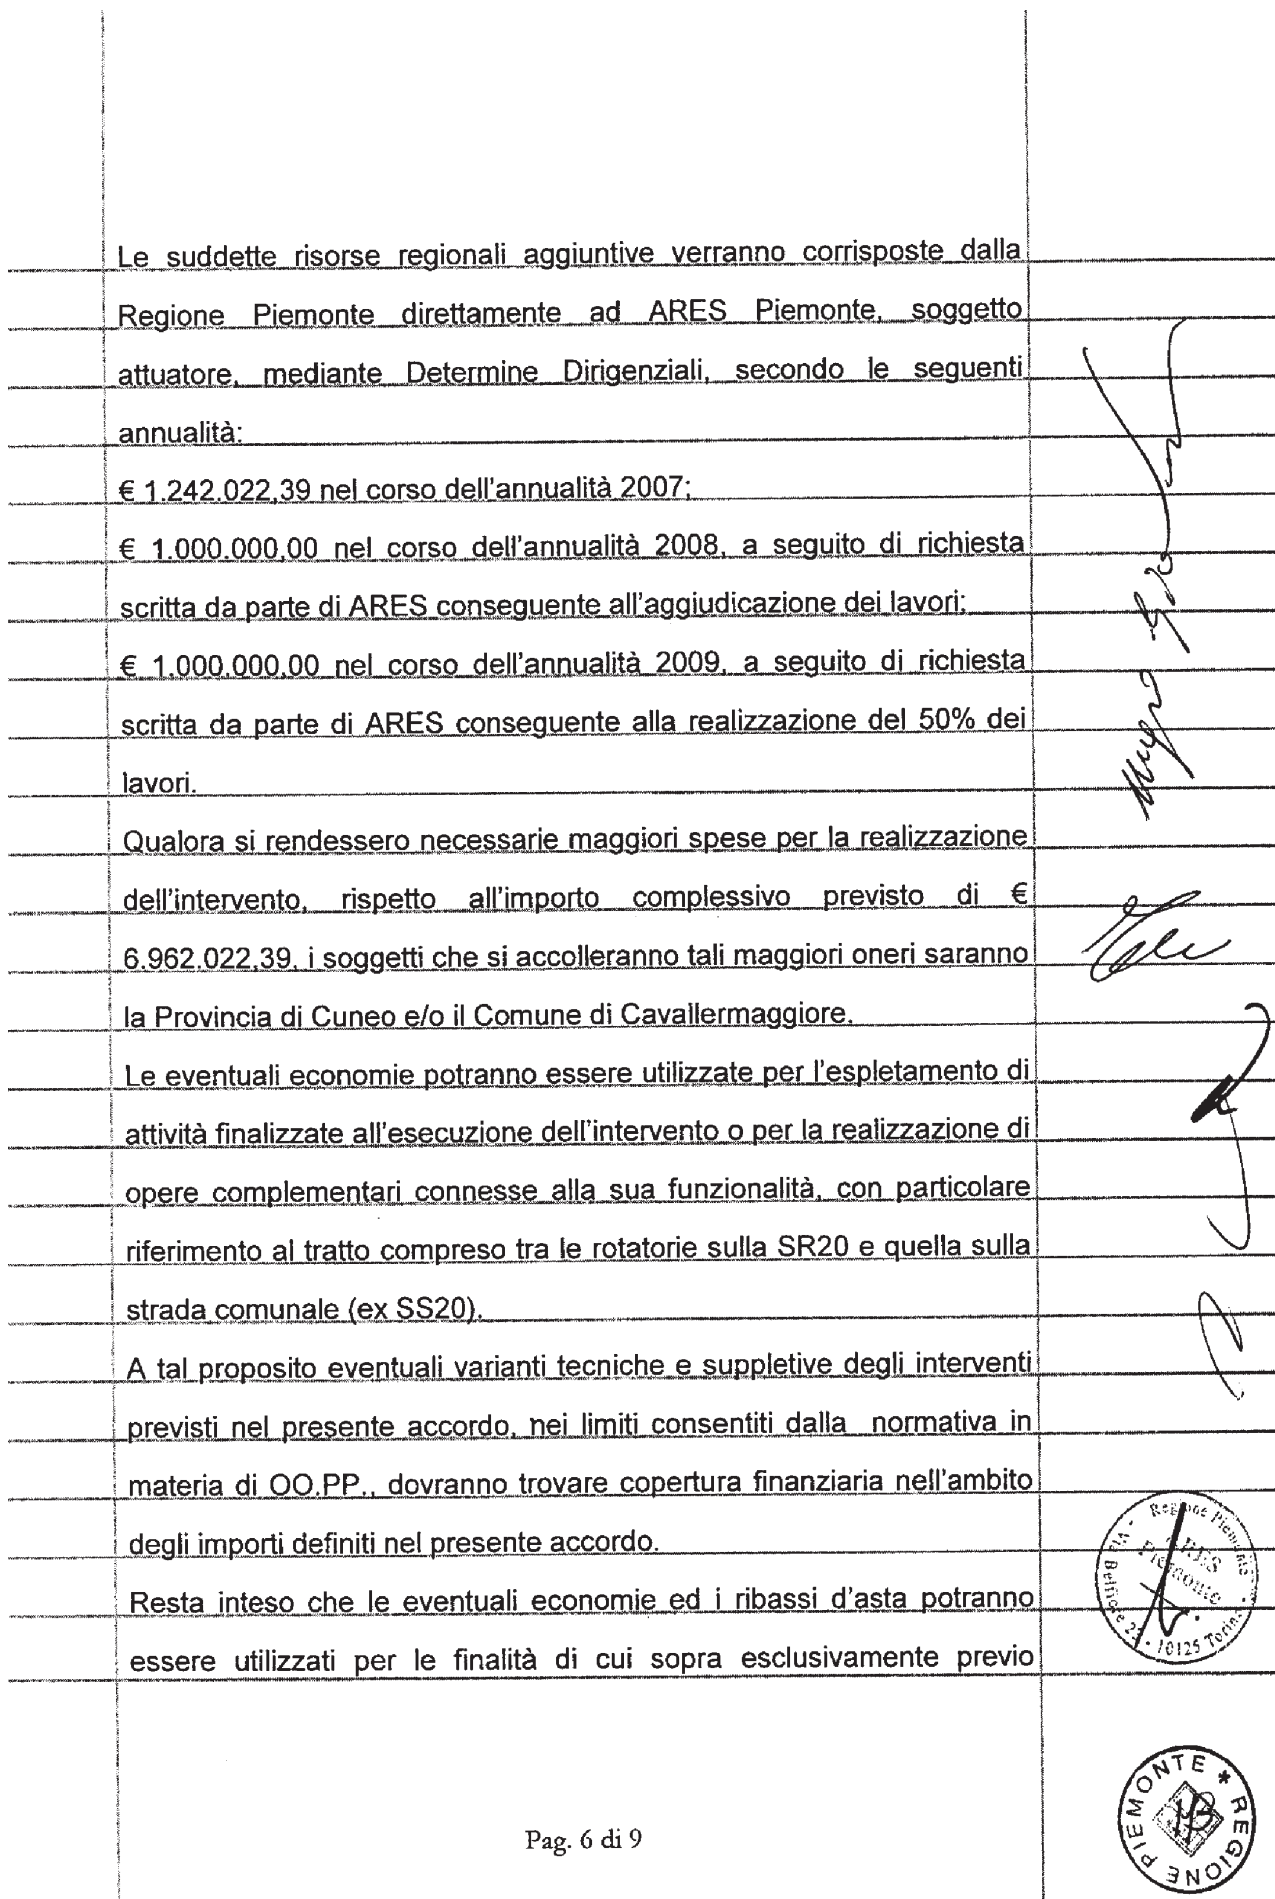 Le suddette risorse regionali aggiuntive verranno corrisposte dalla
Regione Piemonte direttamente ad ARES Piemonte, soggetto
attuatore, mediante Determine Dirigenziali, secondo le seguenti
annualità:
€ 1.242.022,39 nel corso dell'annualità 2007;
€ 1.000.000,00 nel corso dell'annualità 2008, a seguito di richiesta
scritta da parte di ARES conseguente all'aggiudicazione dei lavori;
€ 1.000.000,00 nel corso dell'annualità 2009, a seguito di richiesta
scritta da parte di ARES conseguente alla realizzazione del 50% dei
lavori.
Qualora si rendessero necessarie maggiori spese per la realizzazione
dell'intervento, rispetto all'importo complessivo previsto di €
6.962.022,39, i soggetti che si accolleranno tali maggiori oneri saranno
la Provincia di Cuneo e/o il Comune di Cavallermaggiore.
Le eventuali economie potranno essere utilizzate per l'espletamento di
attività finalizzate all'esecuzione dell'intervento o per la realizzazione di
opere complementari connesse alla sua funzionalità, con particolare
riferimento al tratto compreso tra le rotatorie sulla SR20 e quella sulla
strada comunale (ex SS20).
A tal proposito eventuali varianti tecniche e suppletive degli interventi
previsti nel presente accordo, nei limiti consentiti dalla normativa in
materia di OO.PP., dovranno trovare copertura finanziaria nell'ambito
degli importi definiti nel presente accordo.
Resta inteso che le eventuali economie ed i ribassi d'asta potranno
essere utilizzati per le finalità di cui sopra esclusivamente previo
Regione Piemonte
ARES
Piemonte
Via Belfiore 23 - 10125 Torino
REGIONE PIEMONTE
Pag. 6 di 9